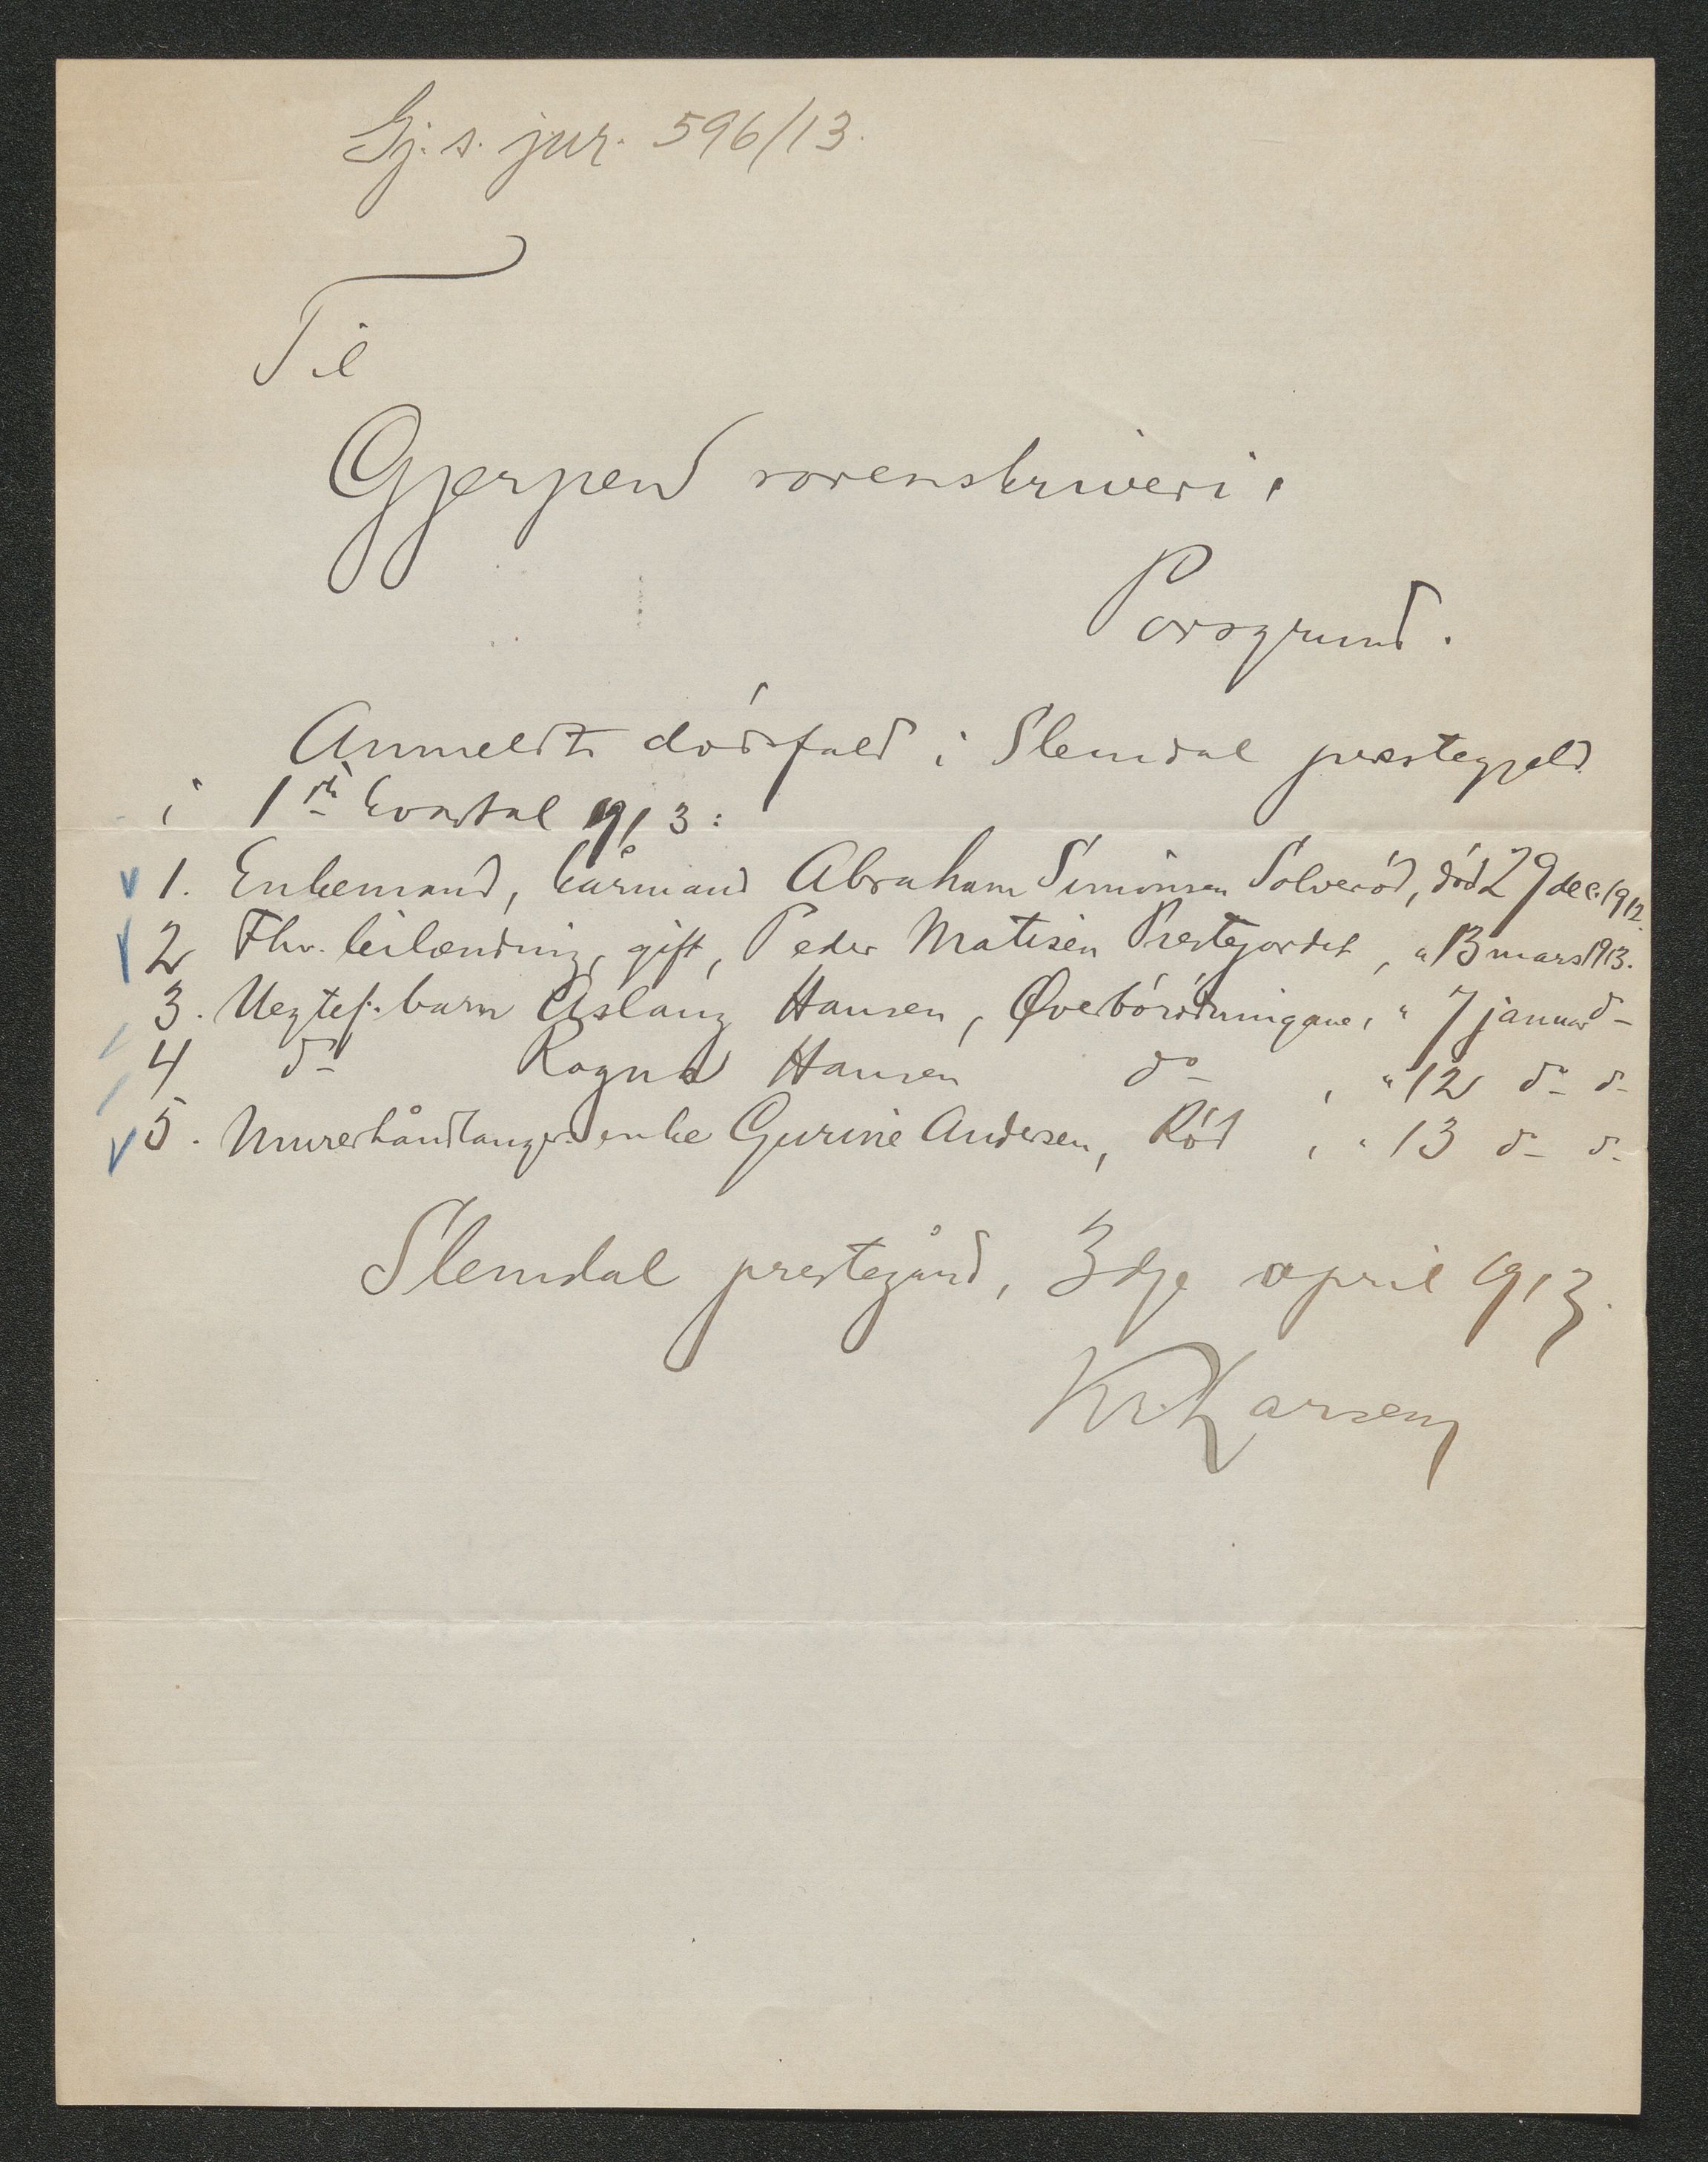 Gj. s. jur. 596/13.
Til
Gjerpen sorenskriveri,
Porsgrund.
Anmeldte dódsfald i Slemdal prestegjeld
i 1ste kvartal 1913:
1. Enkemand, kårmand Abraham Simonsen Solveród, dód 29 dec. 1912.
2 Fhv. leilænding, gift, Peder Matisen Prestejordet, " 13 mars 1913.
3. Uegtef. barn Aslaug Hansen, " 7 januar do
4 do Ragna Hansen do , " 12 do do
5. Murerhåndlanger enke Gurine Andersen, Ród , " 13 do do
Slemdal prestegård, 3dje april 1913.
Kr. Larsen